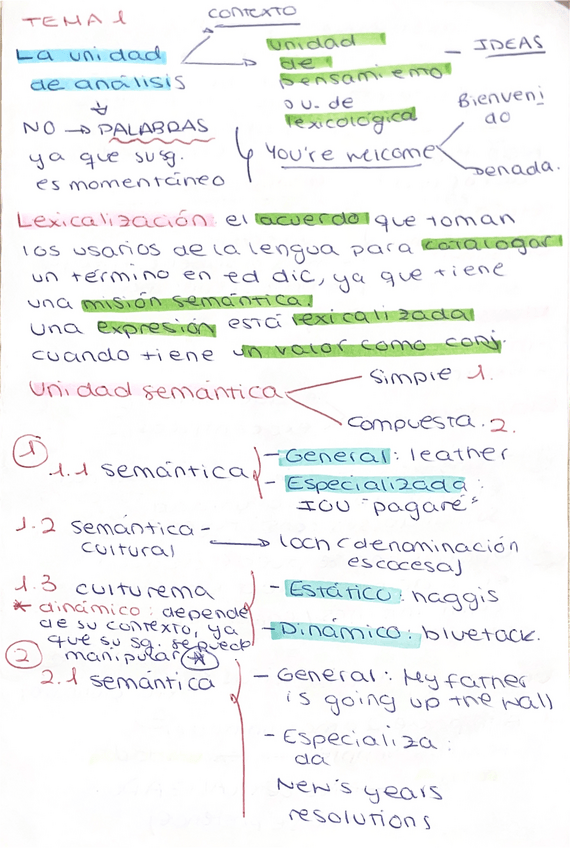 TEMA 1
CONTEXTO
La unidad
de análisis
NO → PALABRAS
ya que su sg.
es momentáneo
unidad
de
pensamiemo
o u. de
lexicológica
— IDEAS
You're welcome
Bienveni
do
Denada.
Lexicalización el acuerdo que toman
los usarios de la lengua para catalogar
un término en ed dic, ya que tiene
una misión semántica.
una expresión está lexicalizada
cuando tiene un valor como conj.
Unidad semántica
simple 1.
compuesta. 2.
1
1.1 semántica
- General: leather
- Especializada:
IOU "pagaré"
1.2 semántica-
cultural
→ loch (denominación
escocesa)
1.3 culturema
* dinámico: depende
de su contexto, ya
que su sg. se puede
manipular
- Estático: haggis
- Dinámico: bluetack.
2
2.1 semántica
- General: My father
is going up the wall
- Especializa:
da
New's years
resolutions